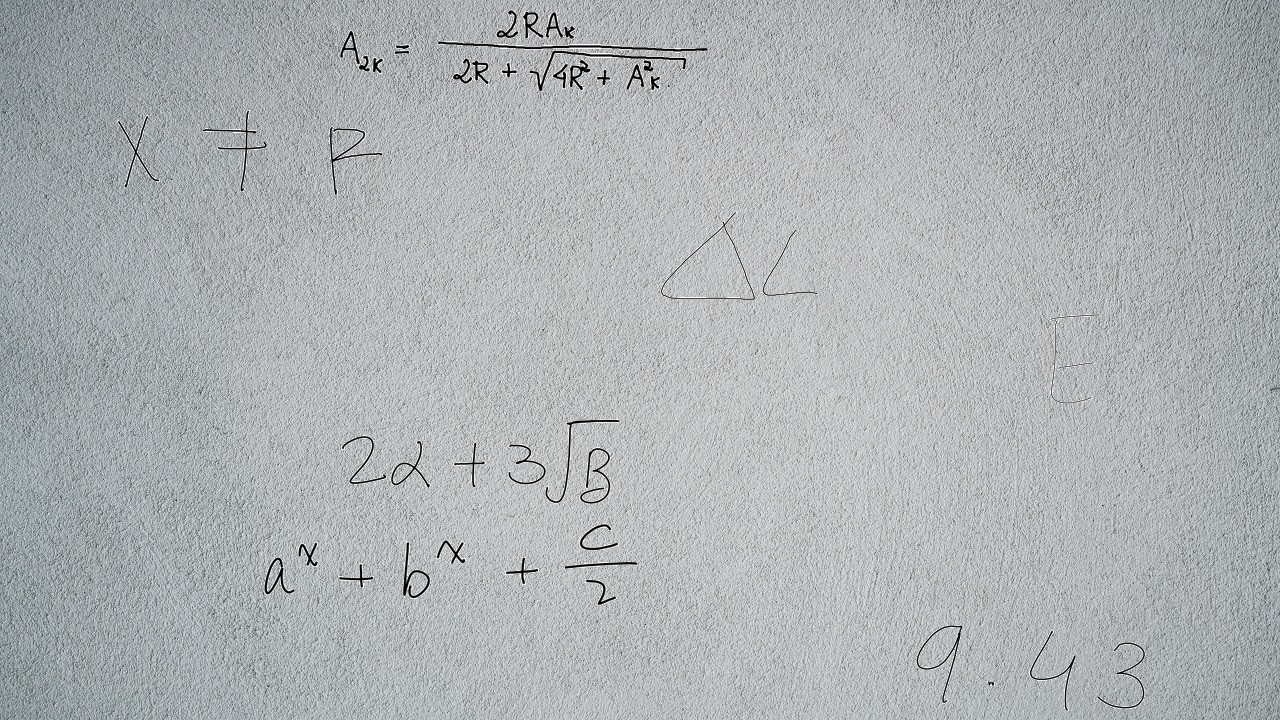 A₂ₖ = 2RAₖ / (2R + √(4R² + A²ₖ))
X ≠ P
ΔL
E
2α + 3√B
aˣ + bˣ + c/2
9.43